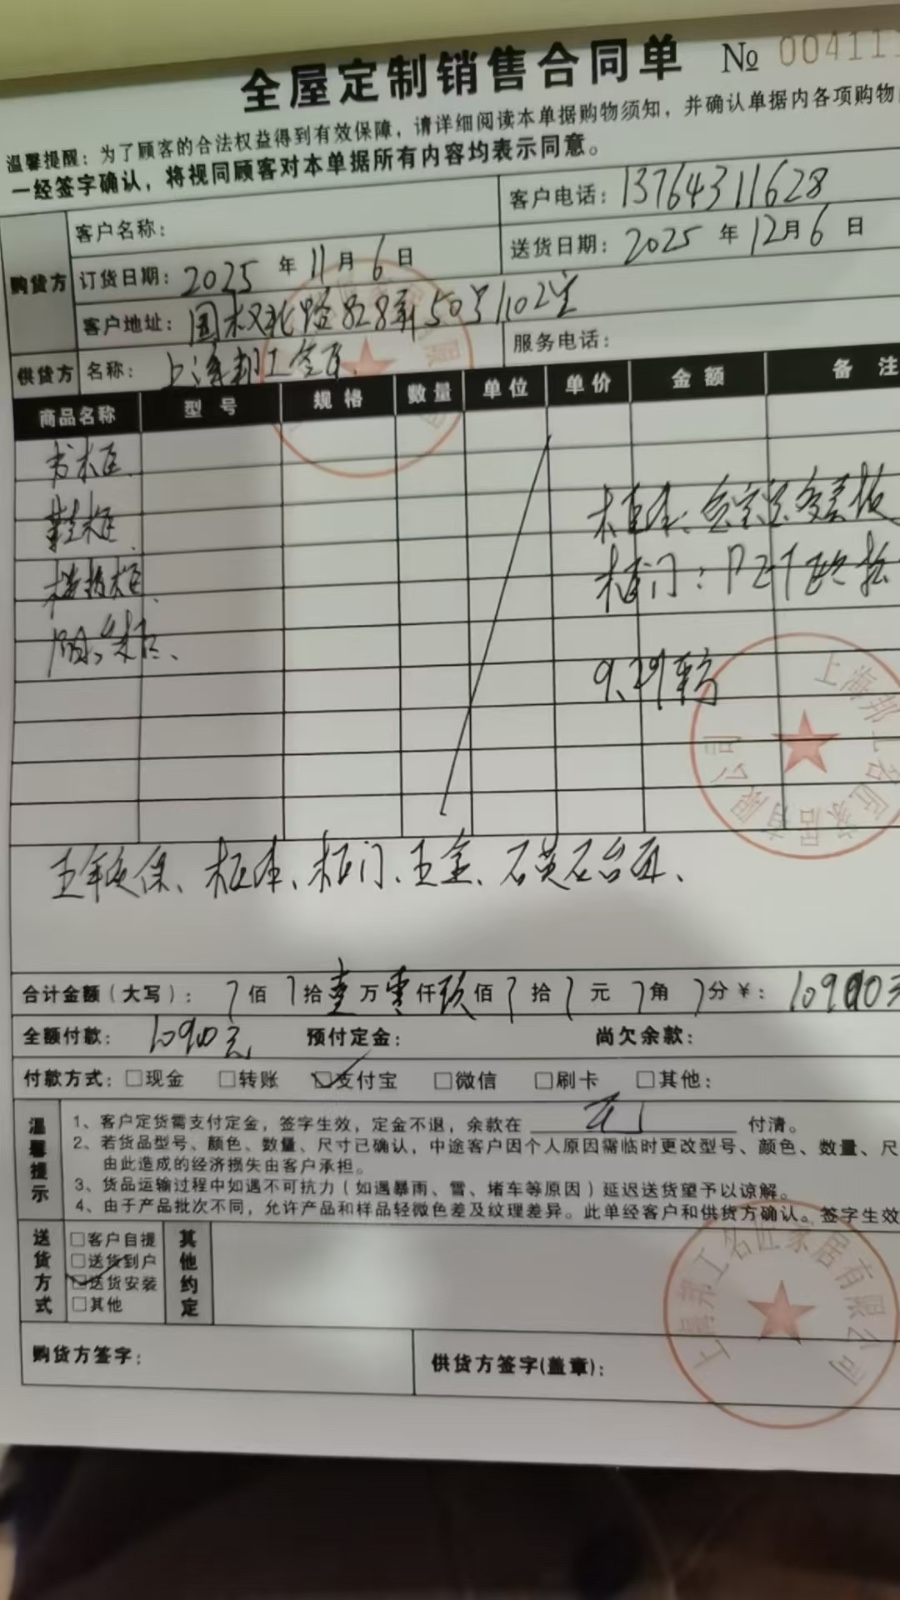 全屋定制销售合同单 № 004111
温馨提醒：为了顾客的合法权益得到有效保障，请详细阅读本单据购物须知，并确认单据内各项购物
一经签字确认，将视同顾客对本单据所有内容均表示同意。
购货方
客户名称： 客户电话：13764311628
订货日期：2025 年 11 月 6 日 送货日期：2025 年 12 月 6 日
客户地址：国权北路828弄50号1102室
供货方 名称：上海邦工名匠 服务电话：
商品名称 型号 规格 数量 单位 单价 金额 备注
书柜
鞋柜
柜体：
柜门：PET
阳台柜、
9.29平方
上海邦工名匠家居有限公司
五年质保、柜体、柜门、五金、石英石台面、
合计金额（大写）： 佰 拾 壹 万 零 仟 玖 佰 拾 元 角 分 ¥：
全额付款： 预付定金： 尚欠余款：
付款方式：□现金 □转账 ☑支付宝 □微信 □刷卡 □其他：
温馨提示
1、客户定货需支付定金，签字生效，定金不退，余款在 付清。
2、若货品型号、颜色、数量、尺寸已确认，中途客户因个人原因需临时更改型号、颜色、数量、尺
由此造成的经济损失由客户承担。
3、货品运输过程中如遇不可抗力（如遇暴雨、雪、堵车等原因）延迟送货望予以谅解。
4、由于产品批次不同，允许产品和样品轻微色差及纹理差异。此单经客户和供货方确认。签字生效
送货方式
□客户自提
□送货到户
☑送货安装
□其他
其他约定
上海邦工名匠家居有限公司
购货方签字： 供货方签字(盖章)：